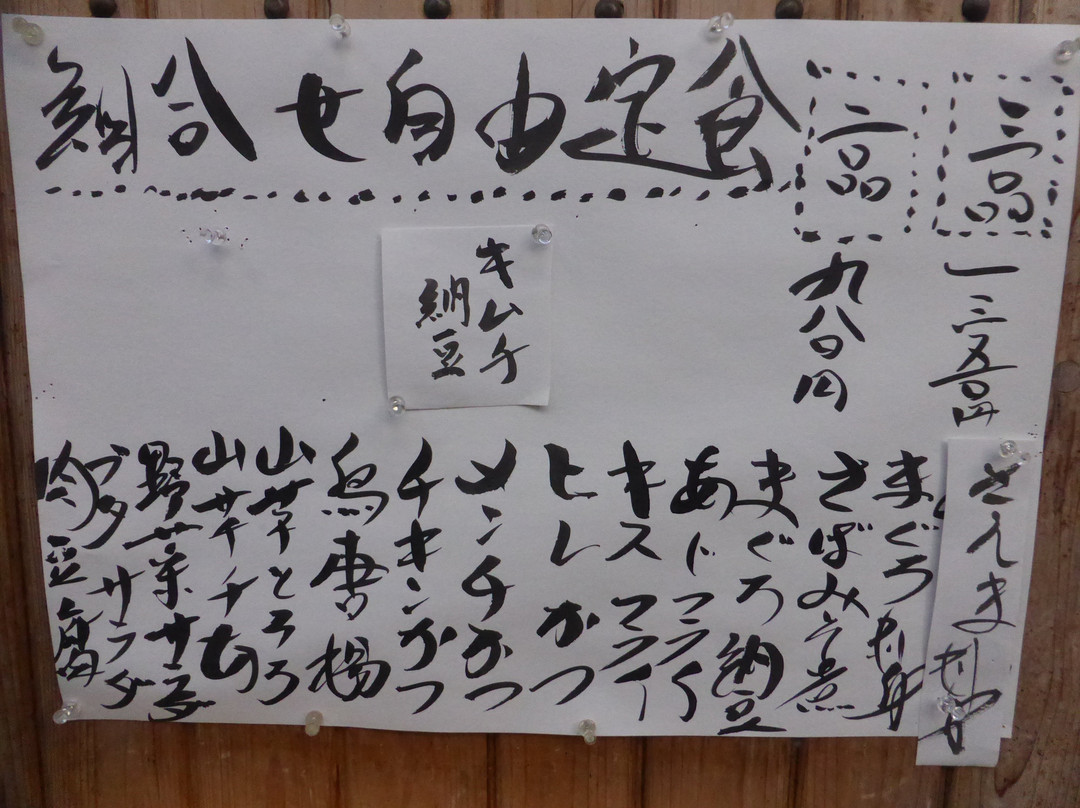 組合せ自由定食
三品
一三五〇円
二品
九八〇円
キムチ
納豆
さんま刺身
まぐろ刺身
さばみそ煮
まぐろ納豆
あじフライ
キスフライ
ヒレかつ
メンチかつ
チキンかつ
鳥唐揚
山芋とろろ
山芋
野菜サラダ
サラダ
豆腐